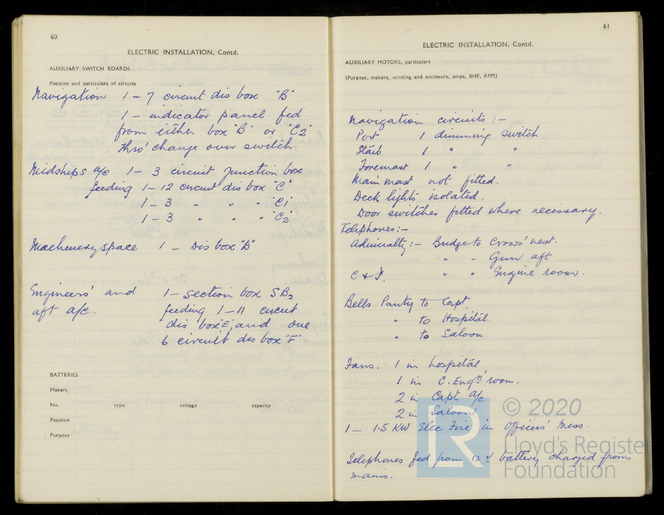 60
ELECTRIC INSTALLATION, Contd.
AUXILIARY SWITCH BOARDS
Position and particulars of circuits
Navigation 1 - 7 circuit dis box "B"
1 - indicator panel fed
from either box "B" or "C2"
thro' change over switch
Midships a/c 1 - 3 circuit junction box
feeding 1 - 12 circuit dis box "C"
1 - 3 " " " "C1"
1 - 3 " " " "C2"
Machinery space 1 - Dis box "D"
Engineers' and 1 - section box SB2
aft a/c. feeding 1 - 11 circuit
dis box "E" and one
6 circuit dis box "F"
BATTERIES
Makers
No. type voltage capacity
Position
Purpose
61
ELECTRIC INSTALLATION, Contd.
AUXILIARY MOTORS, particulars
(Purpose, makers, winding and enclosure, amps, BHP, RPM)
Navigation circuits :-
Port 1 dimming switch
Starb 1 " "
Foremast 1 " "
Main mast not fitted.
Deck lights isolated.
Door switches fitted where necessary.
Telephones :-
Admiralty :- Bridge to Crows' nest.
" - Gun aft
" " Engine room.
Bells Pantry to Capt.
" to Hospital
" to Saloon
Fans. 1 in hospital
1 in C. Engrs' room.
2 in Capt a/c
2 in Saloon
1 - 1.5 KW Elec Fire in Officers' Mess.
Telephones fed from 12 v battery charged from
mains.
© 2020
LR
Lloyd's Register
Foundation